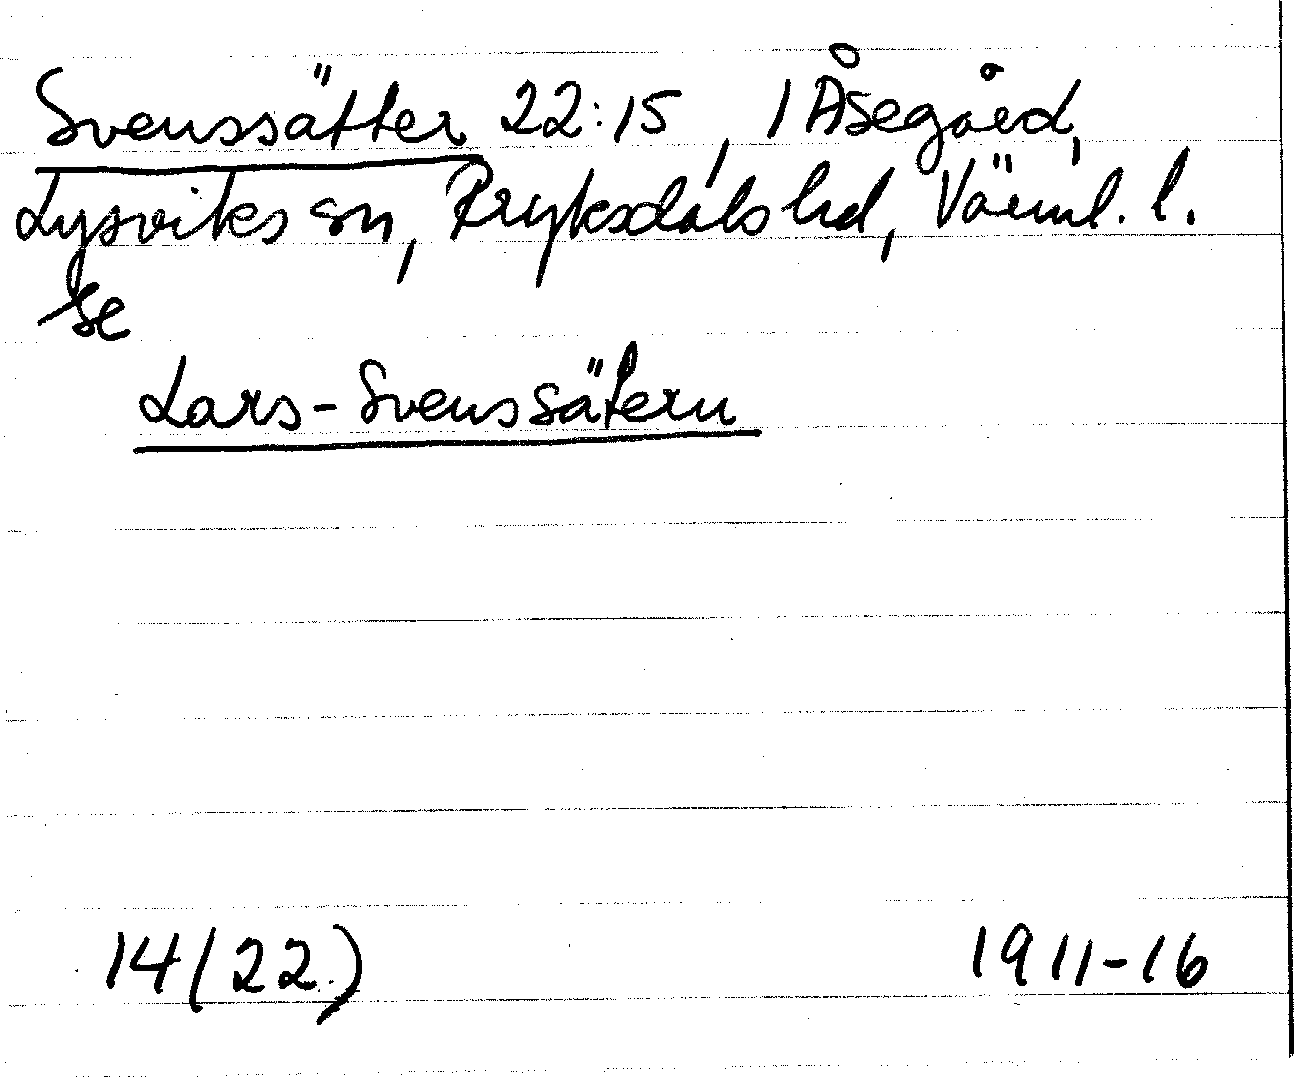 Svenssätter 22:15, 1 Åsegård,
Lysviks sn, Fryksdals hd, Värml. l.
se
Lars-Svenssätern
14(22.) 1911-16